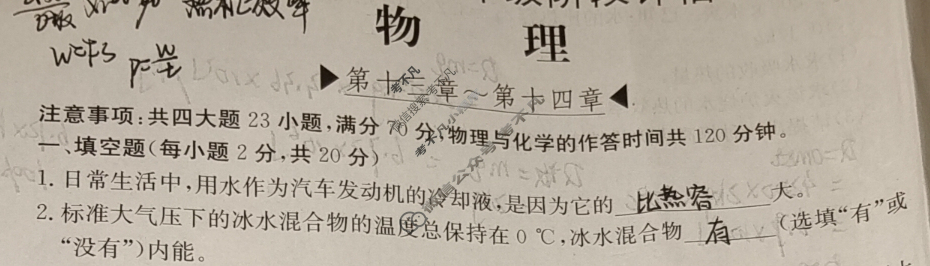 热机效率
物 理
W=FS P=W/t
▶第十三章~第十四章◀
注意事项:共四大题 23 小题,满分 70 分,物理与化学的作答时间共 120 分钟。
一、填空题(每小题 2 分,共 20 分)
1. 日常生活中,用水作为汽车发动机的冷却液,是因为它的 比热容 大。
2. 标准大气压下的冰水混合物的温度总保持在 0 ℃,冰水混合物 有 (选填“有”或
“没有”)内能。